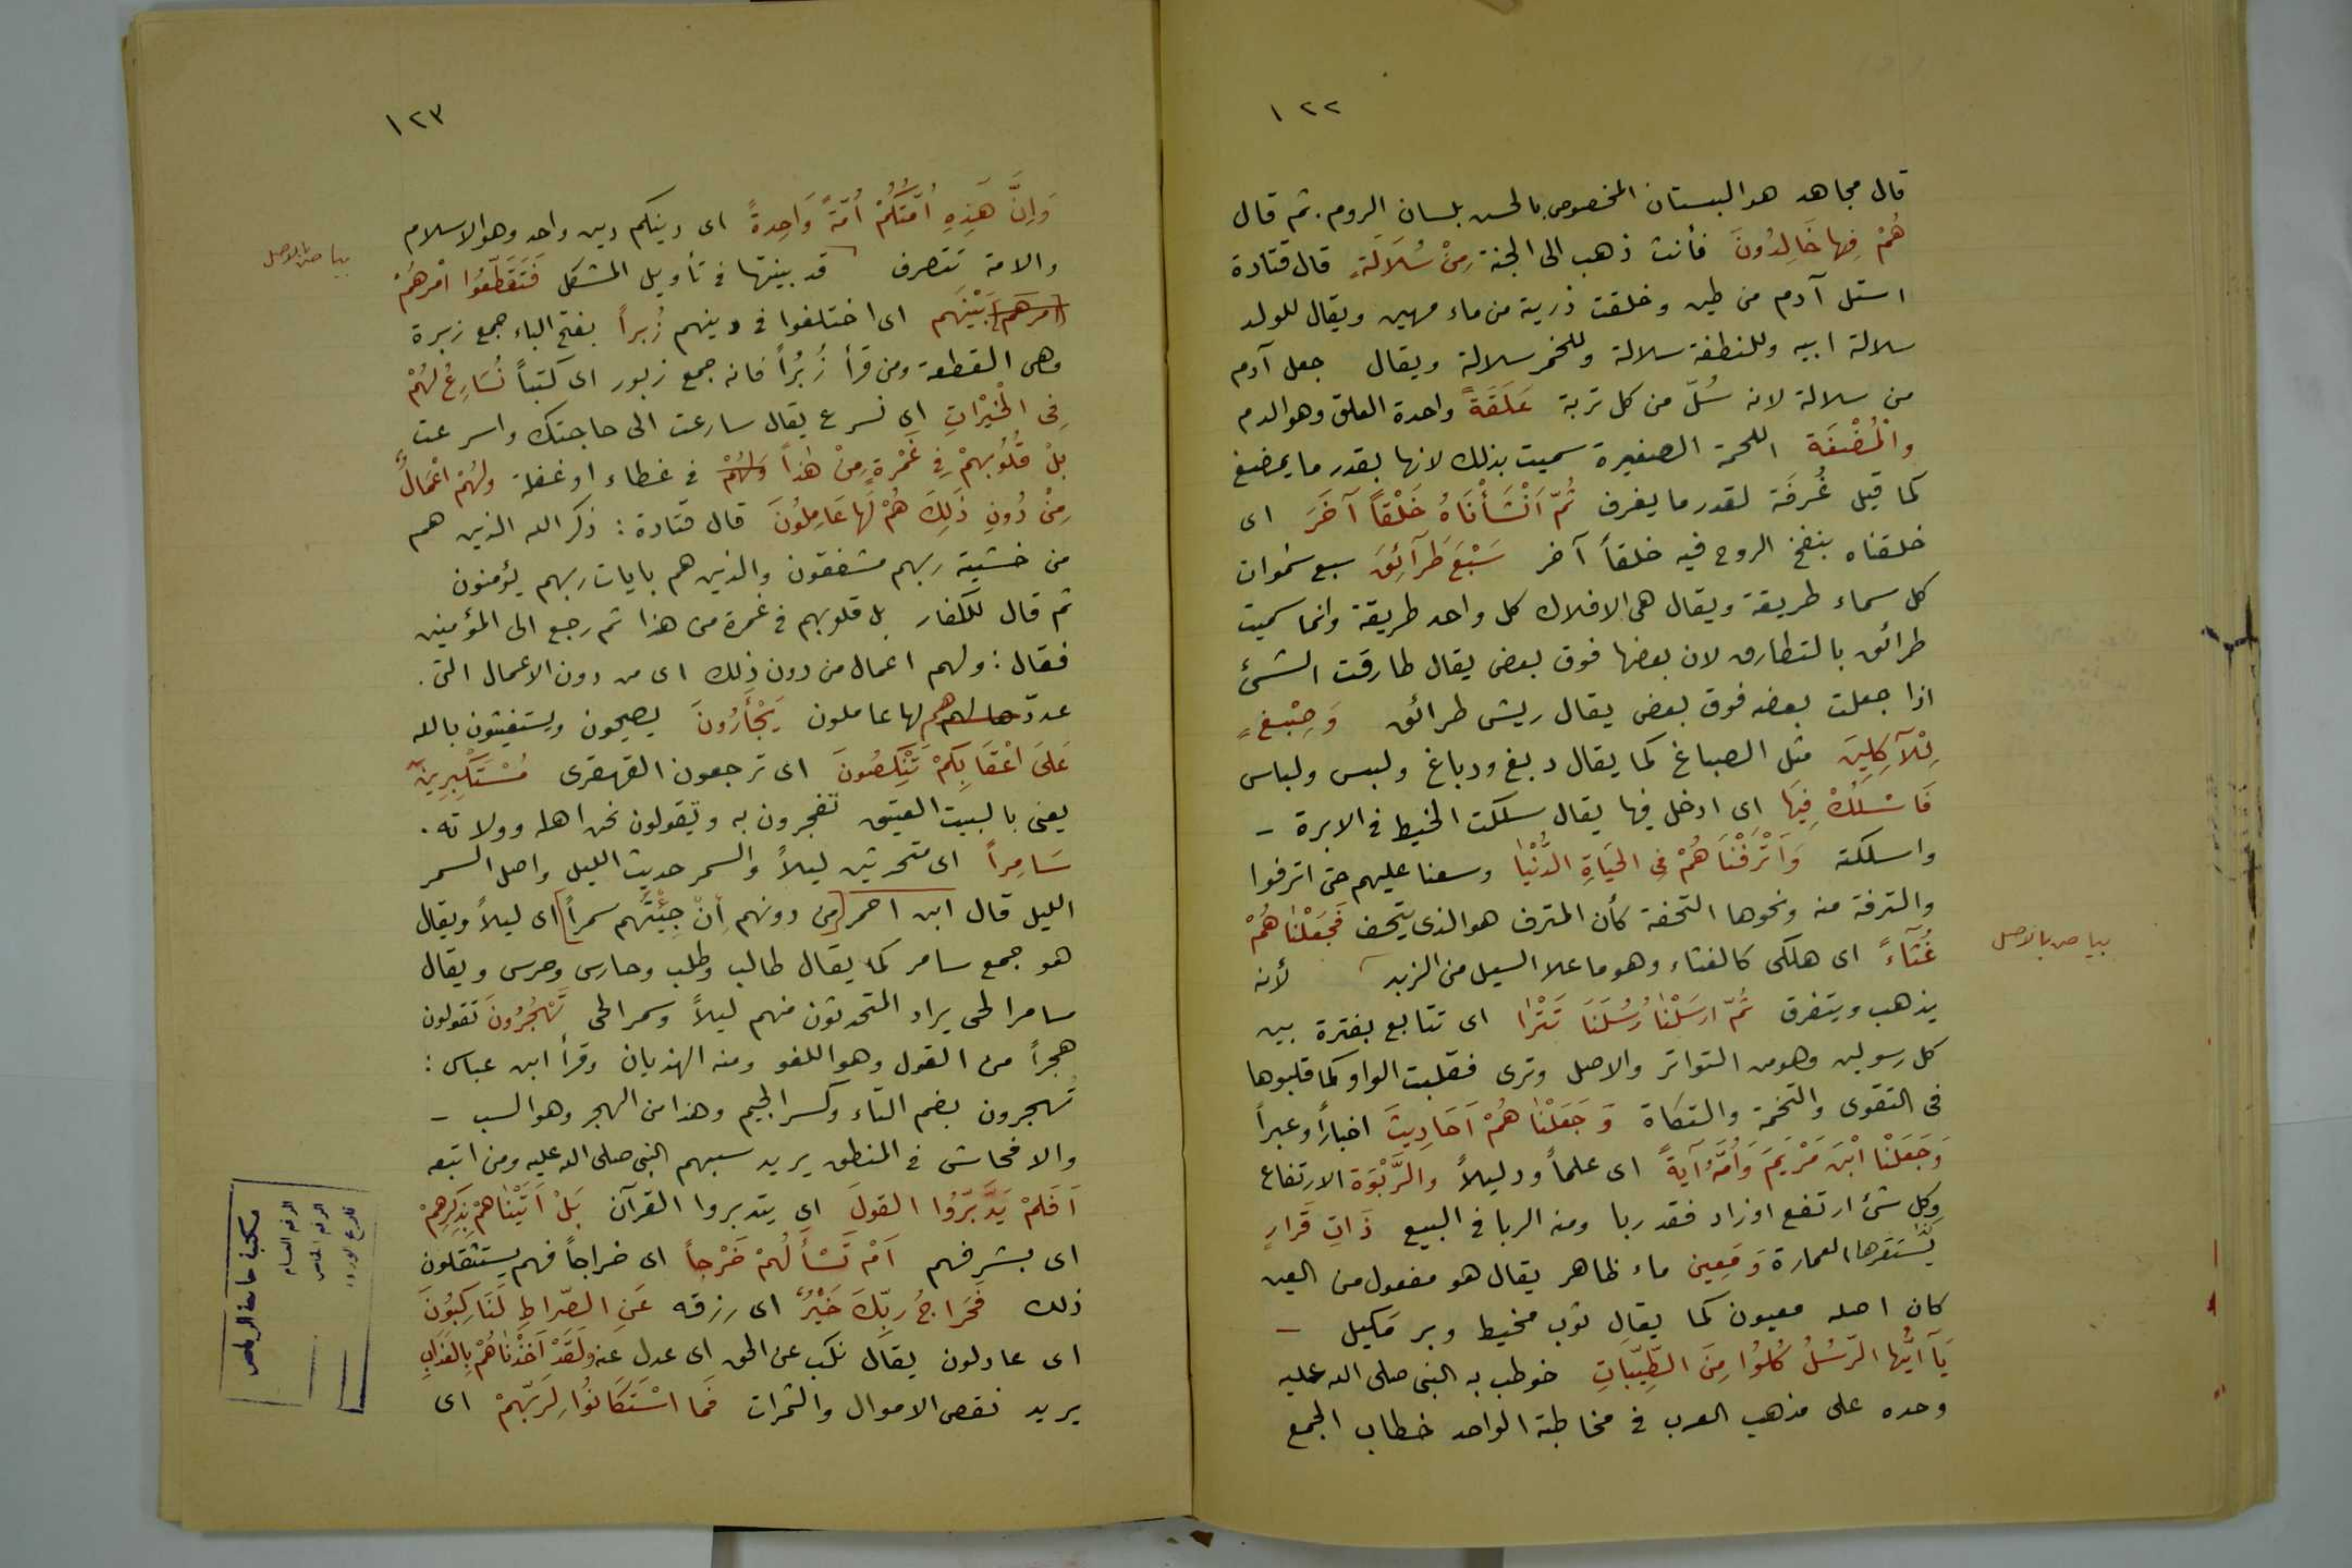 ١٢٢
قال مجاهد هو البستان المخصوص بالحسن بلسان الروم. ثم قال
هُمْ فِيها خَالِدُونَ فأنث ذهب الى الجنة مِنْ سُلَالَةٍ قال قتادة
استل آدم من طين وخلقت ذرية من ماء مهين ويقال للولد
سلالة ابيه وللنطفة سلالة وللخمر سلالة ويقال جعل آدم
من سلالة لانه سُلّ من كل تربة عَلَقَةً واحدة العلق وهو الدم
والْمُضْغَة اللحمة الصغيرة سميت بذلك لانها بقدر ما يمضغ
كما قيل غُرفَة لقدر ما يغرف ثُمّ اَنْشَأْنَاهُ خَلْقاً آخَرَ اى
خلقناه بنفخ الروح فيه خلقاً آخر سَبْعَ طَرَآئِقَ سبع سموات
كل سماء طريقة ويقال هى الافلاك كل واحد طريقة وانما سميت
طرائق بالتطارق لان بعضها فوق بعض يقال طارقت الشئ
اذا جعلت بعضه فوق بعض يقال ريش طرائق وَصِبْغٍ
لِلْآكِلِينَ مثل الصباغ كما يقال دبغ ودباغ ولبس ولباس
فَاسْلُكْ فِيهَا اى ادخل فيها يقال سلكت الخيط فى الابرة -
واسلكته وَاَتْرَفْنَاهُمْ فِى الحَيَاةِ الدُّنْيَا وسعنا عليهم حتى اترفوا
والترفة منه ونحوها التحفة كأن المترف هو الذى يتحف فَجَعَلْنَاهُمْ
غُثَآءً اى هلكى كالغثاء وهو ما علا السيل من الزبد لأنه
بياض بالاصل
يذهب ويتفرق ثُمّ ارسَلْنَا رُسُلَنَا تَتْرَا اى تتابع بفترة بين
كل رسولين وهو من التواتر والاصل وترى فقلبت الواو كما قلبوها
فى التقوى والتخمة والتكاة وَجَعَلْنَاهُمْ اَحَادِيثَ اخباراً وعبراً
وَجَعَلْنَا ابْنَ مَرْيَمَ وَاُمَّهُ آيَةً اى علماً ودليلاً والرَّبْوَة الارتفاع
وكل شئ ارتفع اوزاد فقد ربا ومنه الربا فى البيع ذَاتِ قَرارٍ
يُسْتَقرها للعمارة وَمَعِين ماء ظاهر يقال هو مفعول من العين
كان اصله معيون كما يقال ثوب مخيط وبر مَكيل -
يَآ اَيُّها الرّسُلُ كُلُوا مِنَ الطّيِّبَاتِ خوطب به النبى صلى الله عليه
وحده على مذهب العرب فى مخاطبة الواحد خطاب الجمع
١٢٣
وَاِنَّ هَذِهِ اُمّتُكُمْ اُمّةً وَاحِدةً اى دينكم دين واحد وهو الاسلام
والامة تتصرف قد بينتها فى تأويل المشكل فَتَقَطّعُوا اَمْرهُمْ
بياض بالاصل
[امرهم] بَيْنَهم اى اختلفوا فى دينهم زُبراً بفتح الباء جمع زبرة
وهى القطعة ومن قرأ زُبُراً فانه جمع زبور اى كتباً نُسَارِعُ لَهُمْ
فِى الْخَيْرَاتِ اى نسرع يقال سارعت الى حاجتك واسرعت
بلْ قُلُوبهمْ فِى غَمْرةٍ مِنْ هٰذاً وَلهُمْ فى غطاء او غفلة ولهُمْ اعْمَالٌ
مِنْ دُونِ ذَلِكَ هُمْ لَها عَامِلُونَ قال قتادة : ذكر الله الذين هم
من خشية ربهم مشفقون والذين هم بايات ربهم يؤمنون
ثم قال للكفار بل قلوبهم فى غمرة من هذا ثم رجع الى المؤمنين
فقال : ولهم اعمال من دون ذلك اى من دون الاعمال التى .
عددها لهم هم لها عاملون يَجْأَرُونَ يصيحون ويستغيثون بالله
عَلَى اَعْقَابِكمْ تَنْكِصُونَ اى ترجعون القهقرى مُسْتَكْبِرِينَ
يعنى بالبيت العتيق تفخرون به وتقولون نحن اهله وولاته .
سَامِراً اى متحدثين ليلاً والسمر حديث الليل واصل السمر
الليل قال ابن احمر [من دونهم اِنْ جِئْتَهُم سمراً] اى ليلاً ويقال
هو جمع سامر كما يقال طالب وطلب وحارس وحرس ويقال
سامر الحى يراد المتحدثون منهم ليلاً وسمر الحى تَهْجُرُونَ تقولون
هجراً من القول وهو اللغو ومنه الهذيان وقرأ ابن عباس :
تُهجرون بضم التاء وكسر الجيم وهذا من الهجر وهو السب -
والافحاش فى المنطق يريد سبهم النبى صلى الله عليه ومن اتبعه
اَفَلمْ يَدَّبّرُوا القولَ اى يتدبروا القرآن بَلْ اَتَيْنَاهمْ بِذِكرِهِمْ
اى بشرفهم اَمْ تَسْأَلُهُمْ خَرْجاً اى خراجاً فهم يستثقلون
ذلك فَخَراجُ رَبّكَ خَيْرٌ اى رزقه عَنِ الصّراطِ لَنَاكِبُونَ
اى عادلون يقال نكب عن الحق اى عدل عنه ولَقَدْ اَخَذْنَاهُمْ بِالعَذَابِ
يريد نقص الاموال والثمرات فَمَا اسْتَكَانُوا لِرَبّهمْ اى
مكتبة جامعة الرياض
الرقم العام
الرقم الخاص
تاريخ الورود